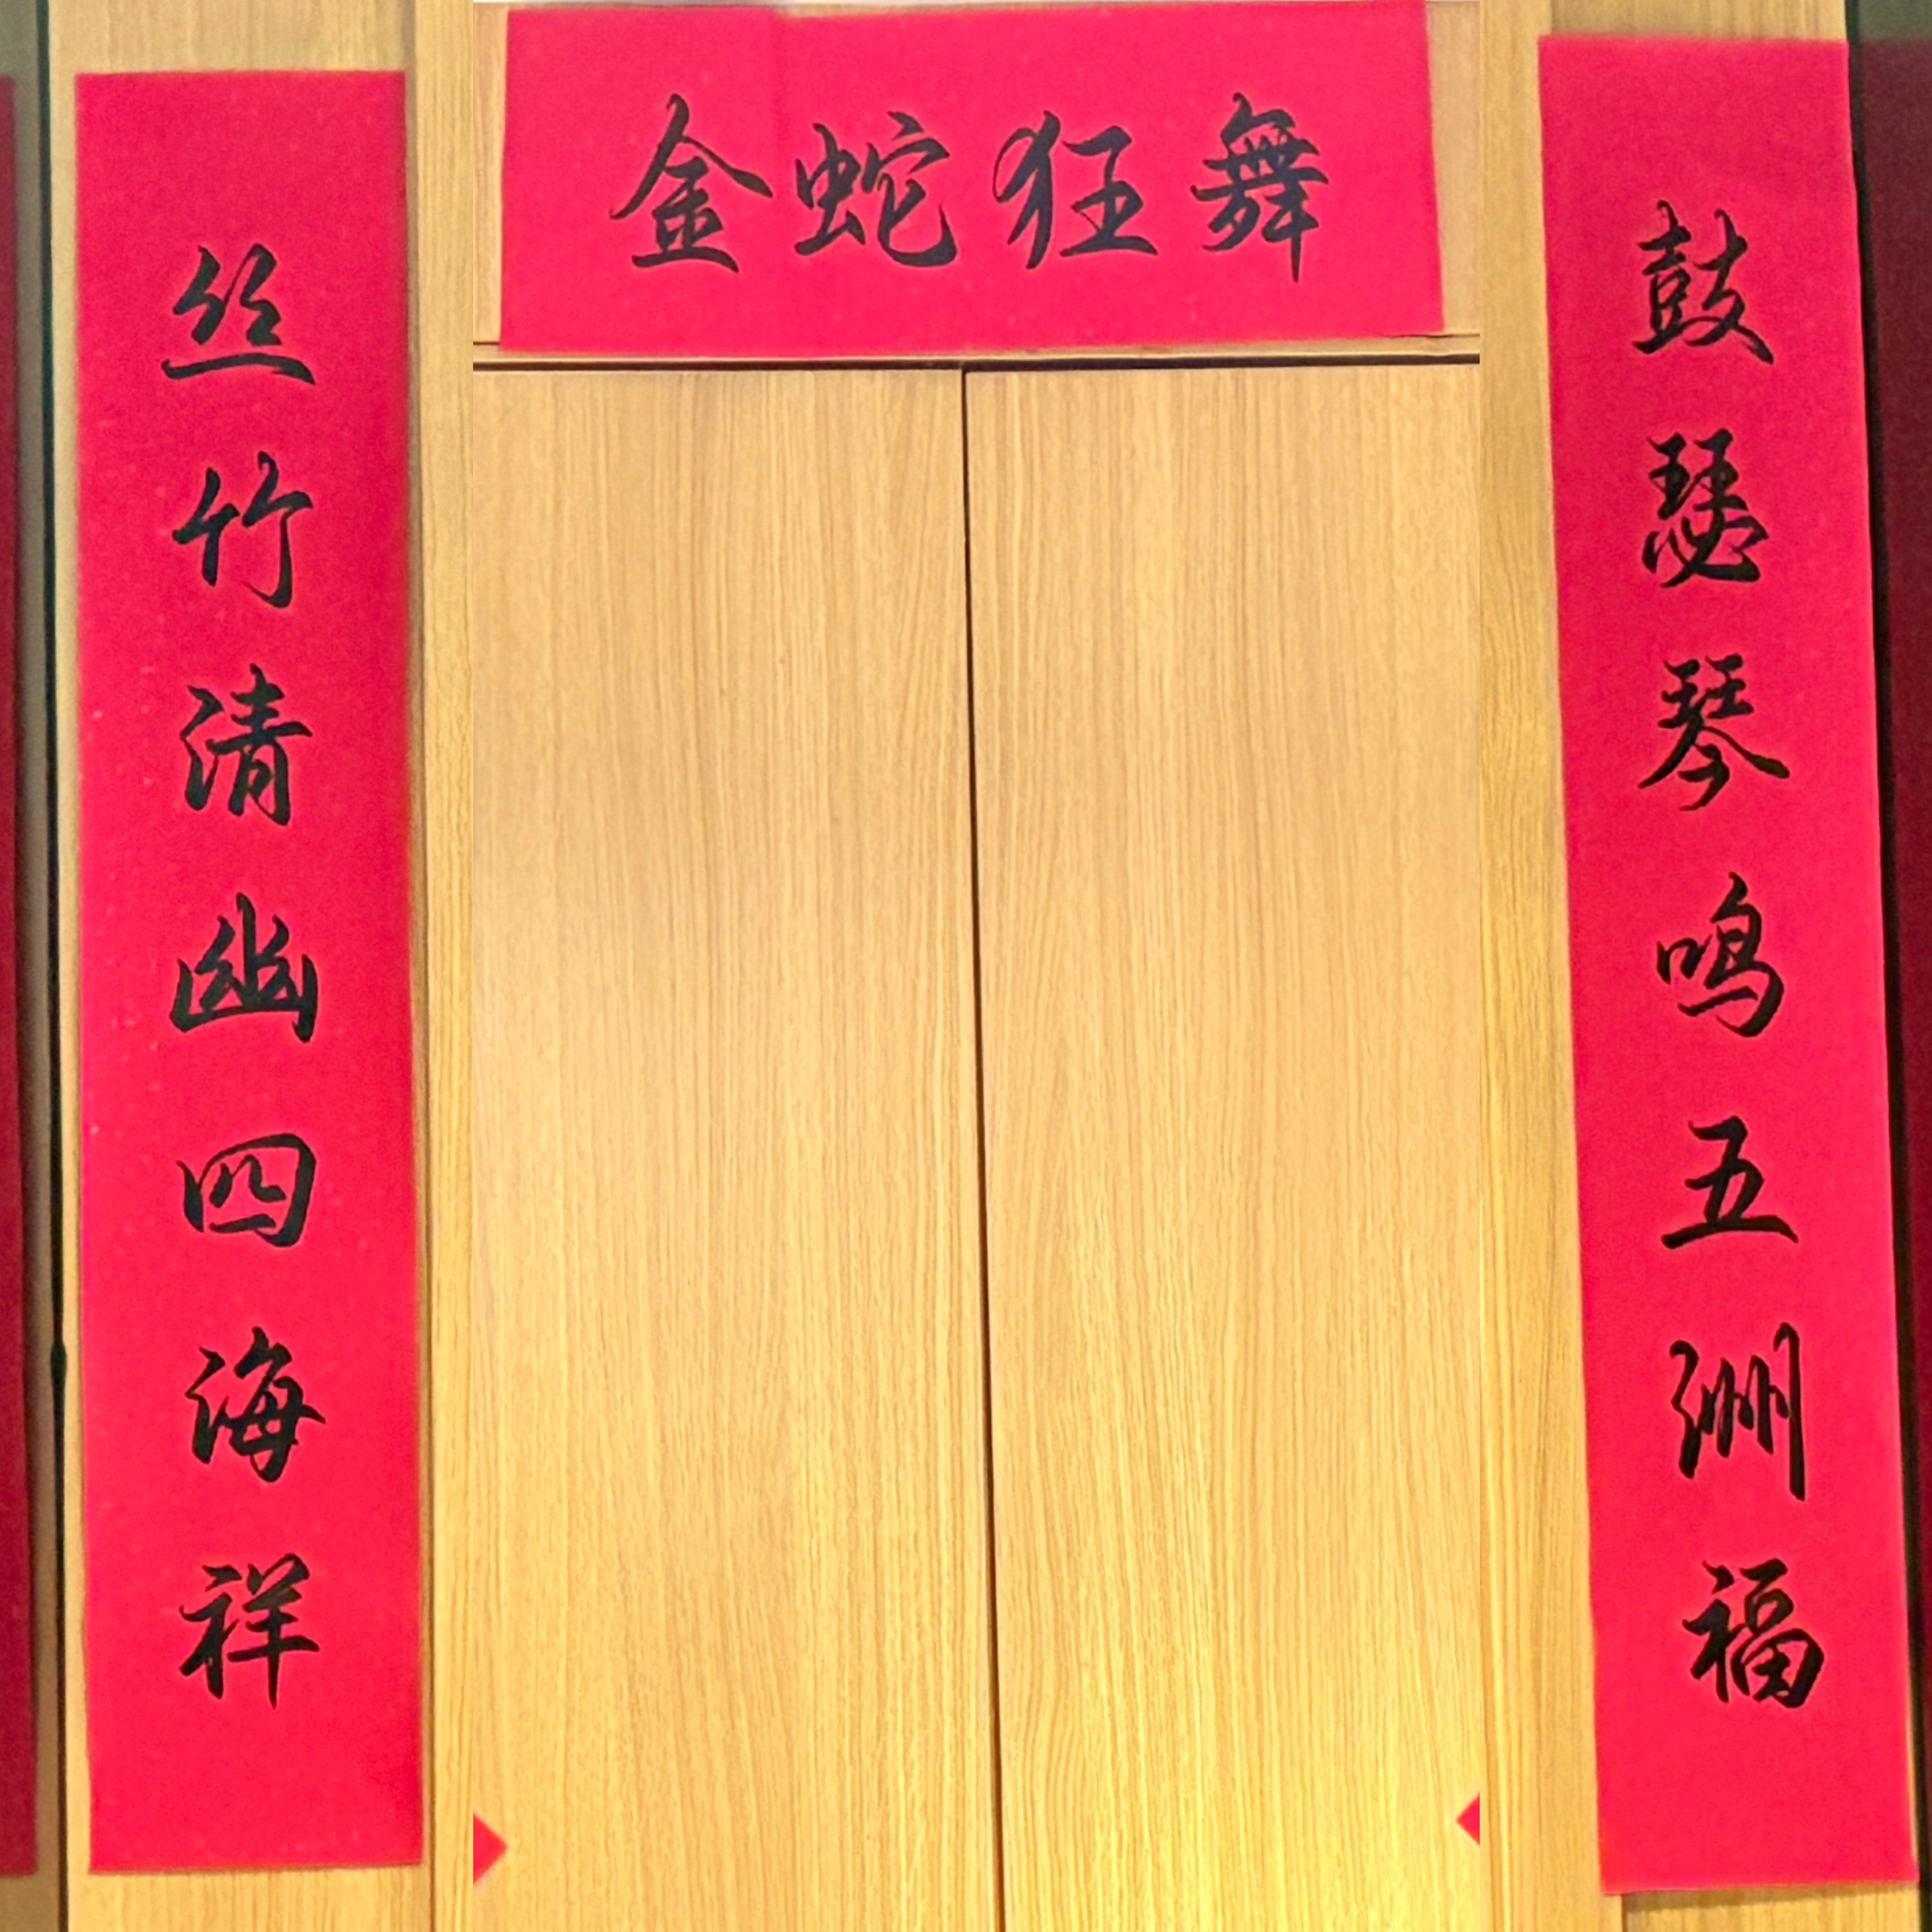 金蛇狂舞
丝竹清幽四海祥
鼓瑟琴鸣五洲福